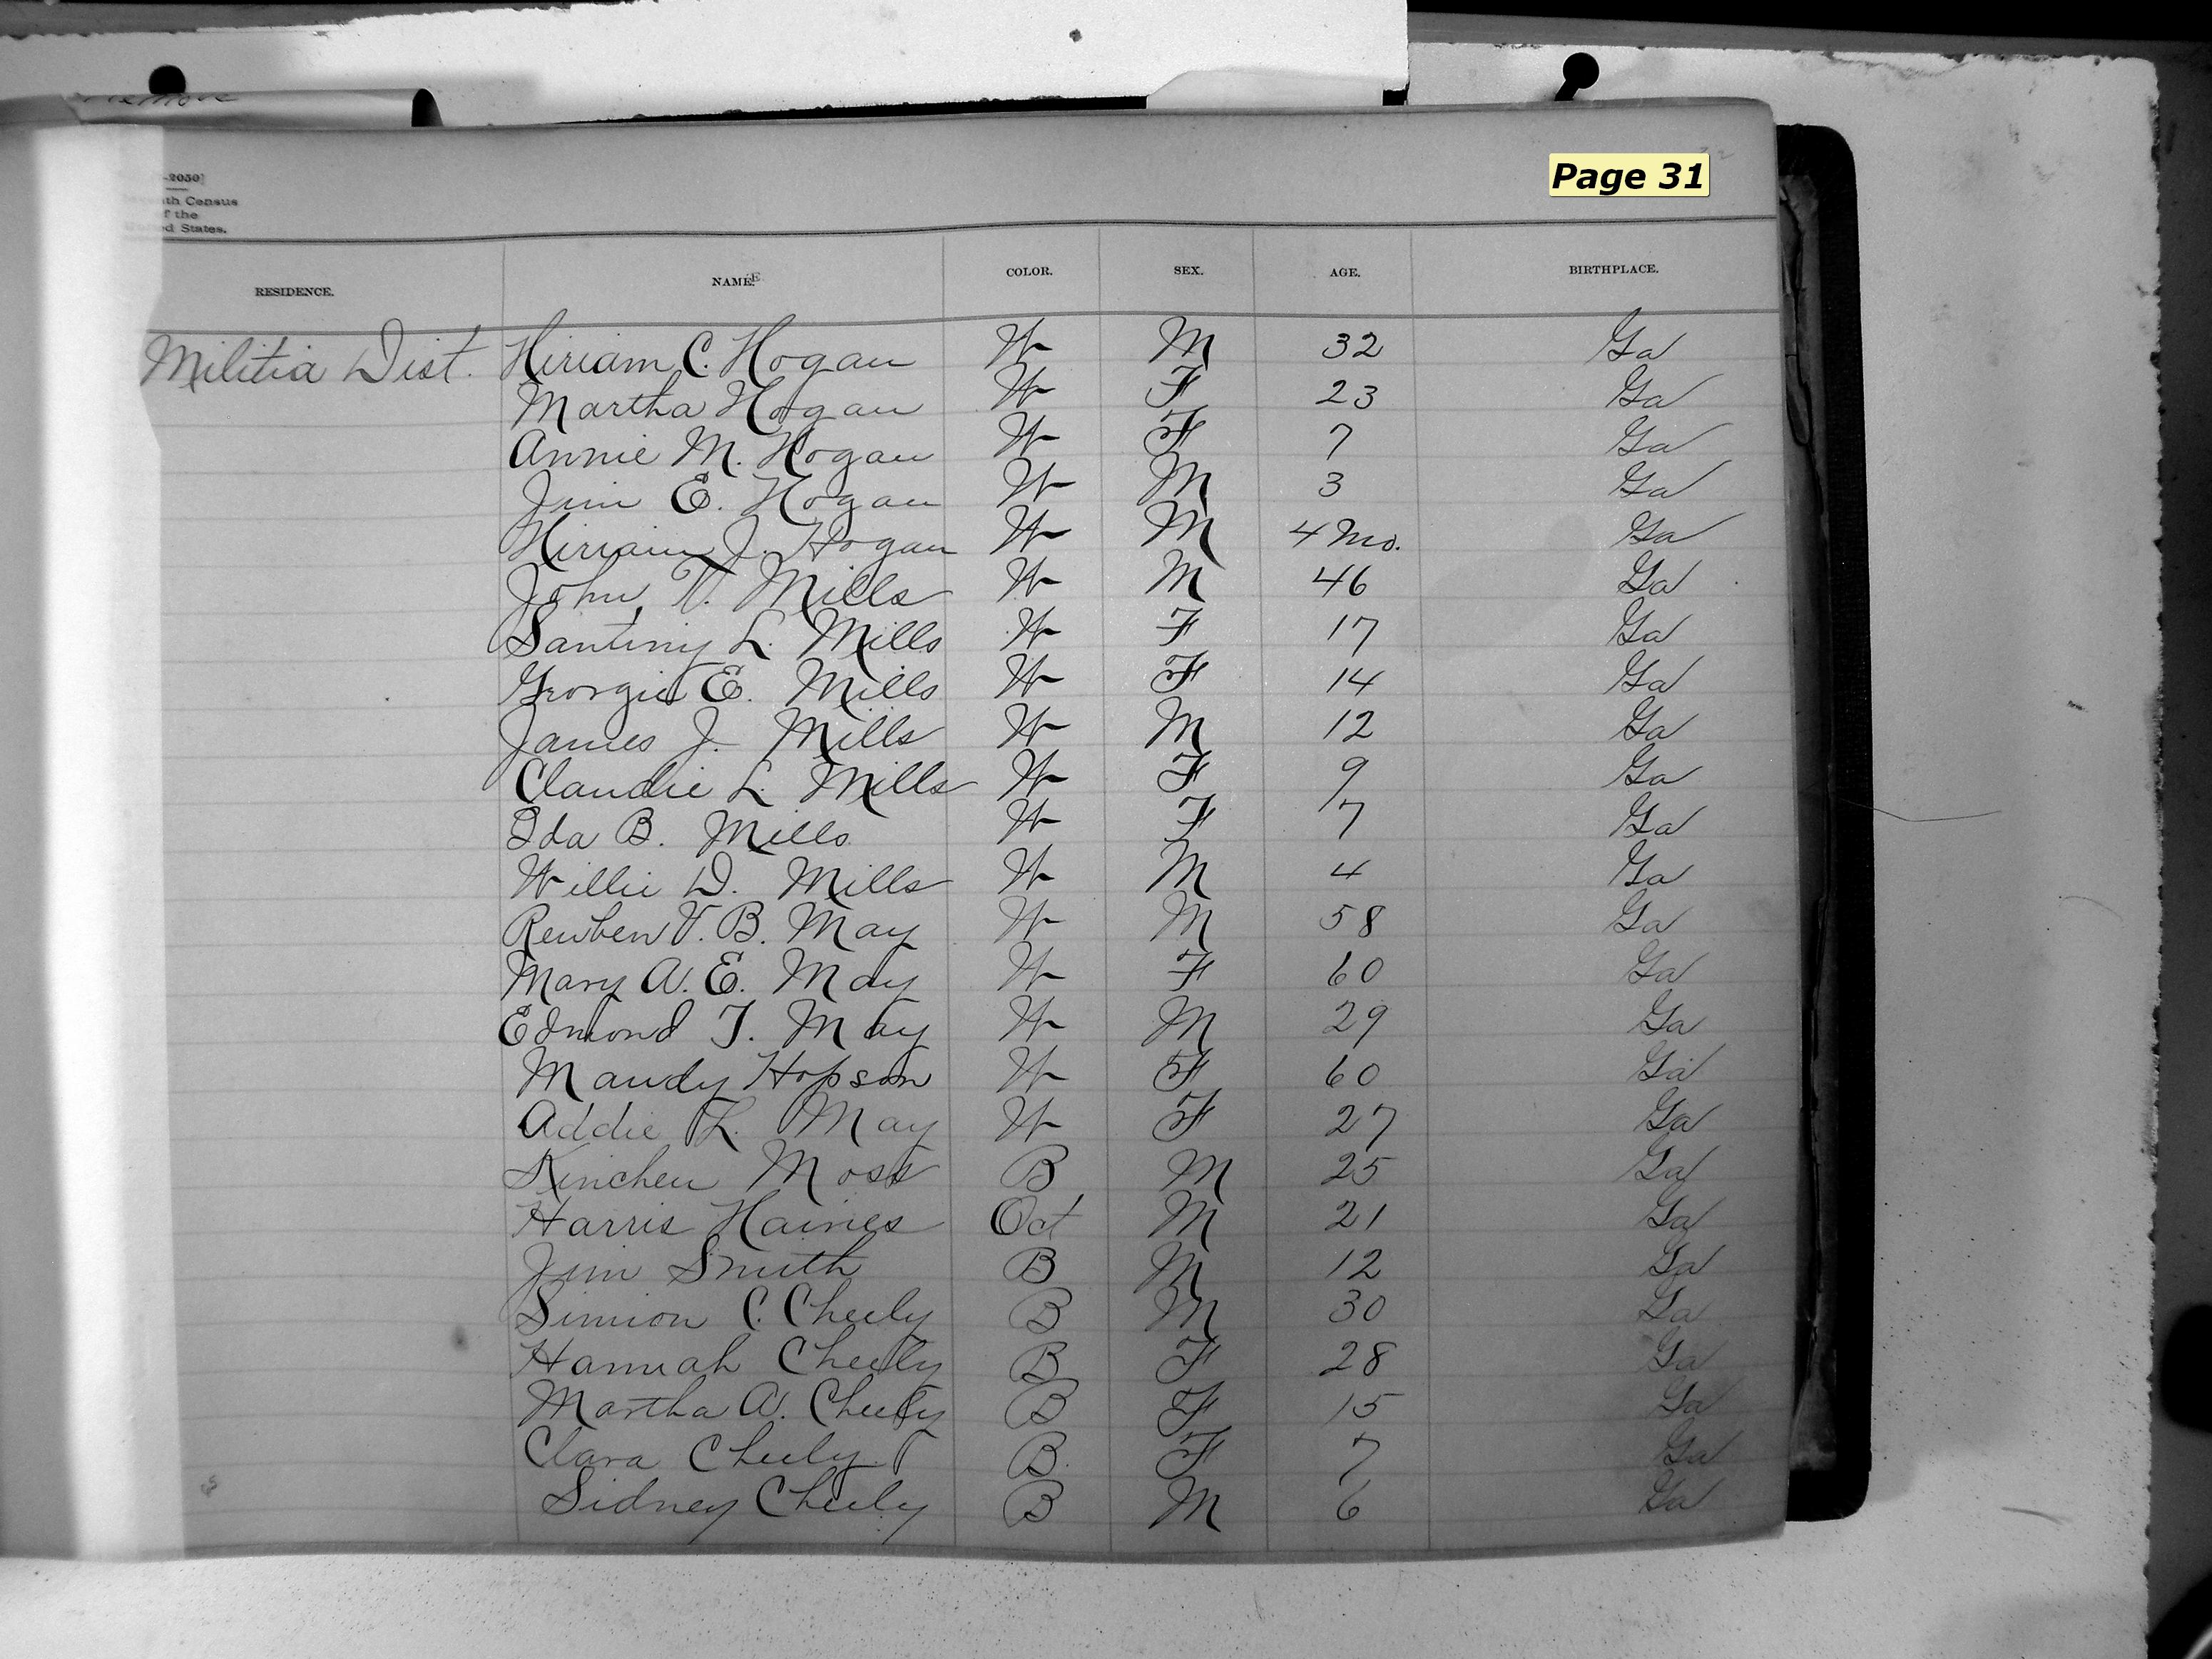 remove
Page 31
-2050]
nth Census
f the
United States.
RESIDENCE. NAME. COLOR. SEX. AGE. BIRTHPLACE.
Militia Dist. Hiriam C. Hogan W M 32 Ga
Martha Hogan W F 23 Ga
Annie M. Hogan W F 7 Ga
Jim E. Hogan W M 3 Ga
Hiriam J. Hogan W M 4 mo. Ga
John V. Mills W M 46 Ga
Santiny L. Mills W F 17 Ga
Georgie E. Mills W F 14 Ga
James J. Mills W M 12 Ga
Claudie L. Mills W F 9 Ga
Ida B. Mills W F 7 Ga
Willie D. Mills W M 4 Ga
Reuben V. B. May W M 58 Ga
Mary A. E. May W F 60 Ga
Edmond T. May W M 29 Ga
Mandy Hopson W F 60 Ga
Addie L. May W F 27 Ga
Kinchen Moss B M 25 Ga
Harris Haines Oct M 21 Ga
Jim Smith B M 12 Ga
Simion C. Cheely B M 30 Ga
Hannah Cheely B F 28 Ga
Martha A. Cheely B F 15 Ga
Clara Cheely B F 7 Ga
Sidney Cheely B M 6 Ga